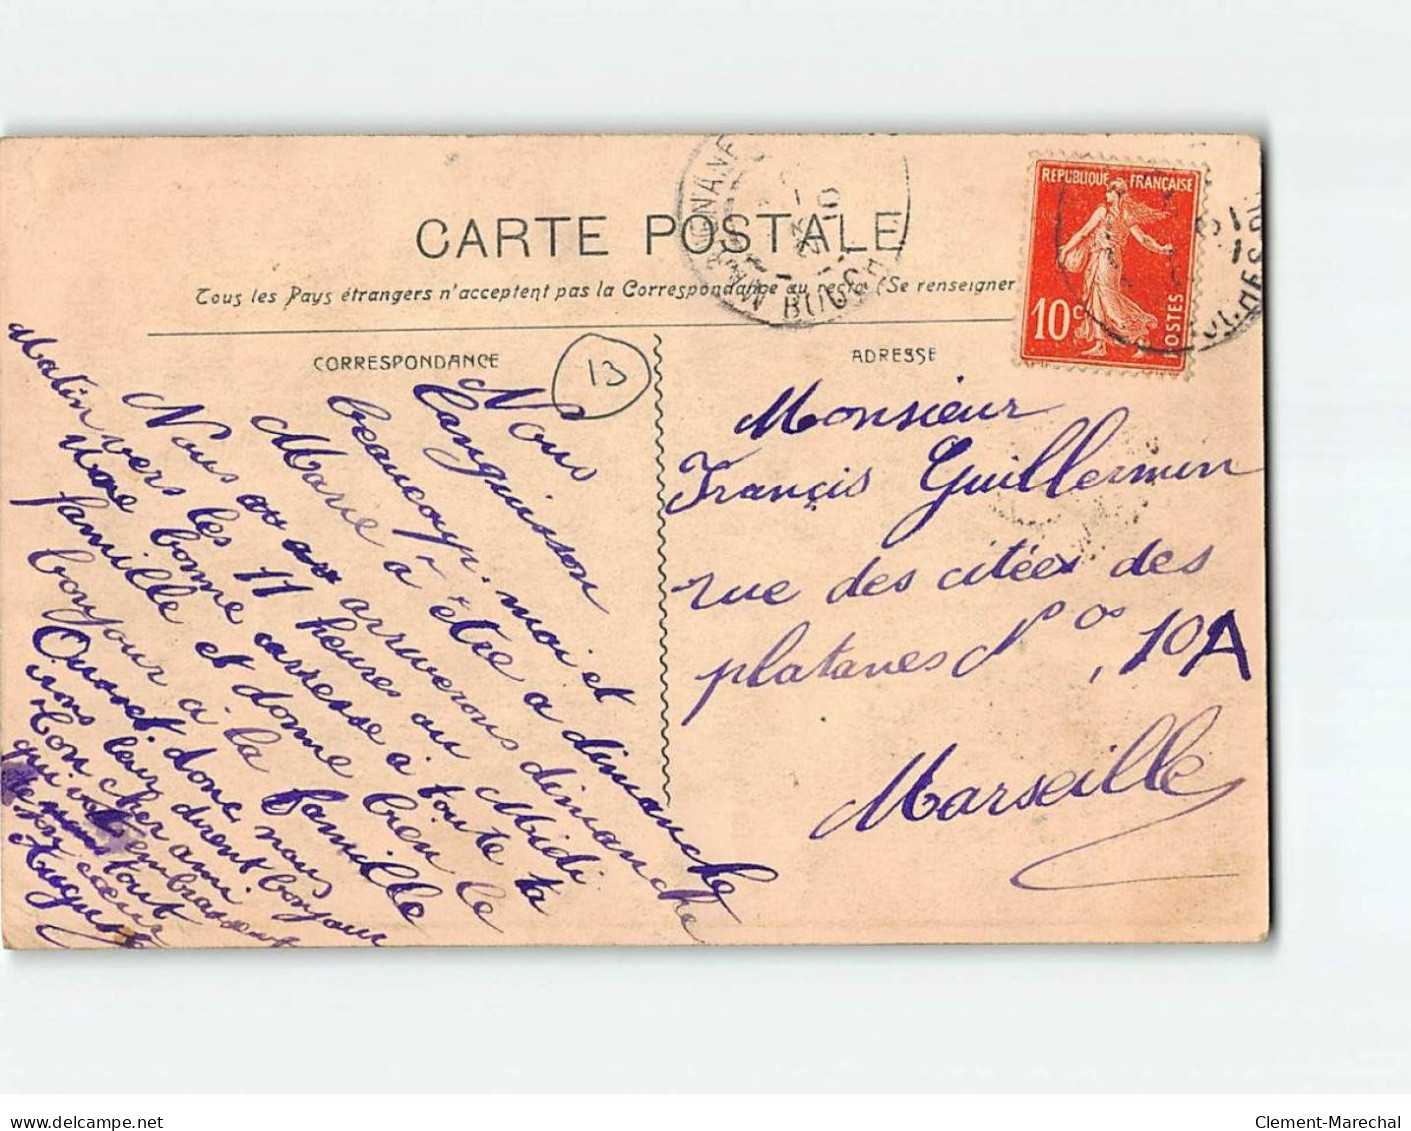 CARTE POSTALE
Tous les Pays étrangers n'acceptent pas la Correspondance au recto. (Se renseigner
CORRESPONDANCE
ADRESSE
13
REPUBLIQUE FRANÇAISE
10c
POSTES
MARIGNANE
Nous
languisson
beaucoup. moi et
Marie à être a dimanche
Nous arriverons dimanche
Matin vers les 11 heures ou Midi
Une bonne caresse à toute ta
famille et donne bien le
bonjour à la famille
Ouaret. donc nous
vous leur dirent bonjour
Ton cher ami
qui vous embrassent
de mon tout
coeur
Auguste
Monsieur
Françis Guillermin
rue des citées des
platanes Nos 10A
Marseille
www.delcampe.net
Clement-Marechal